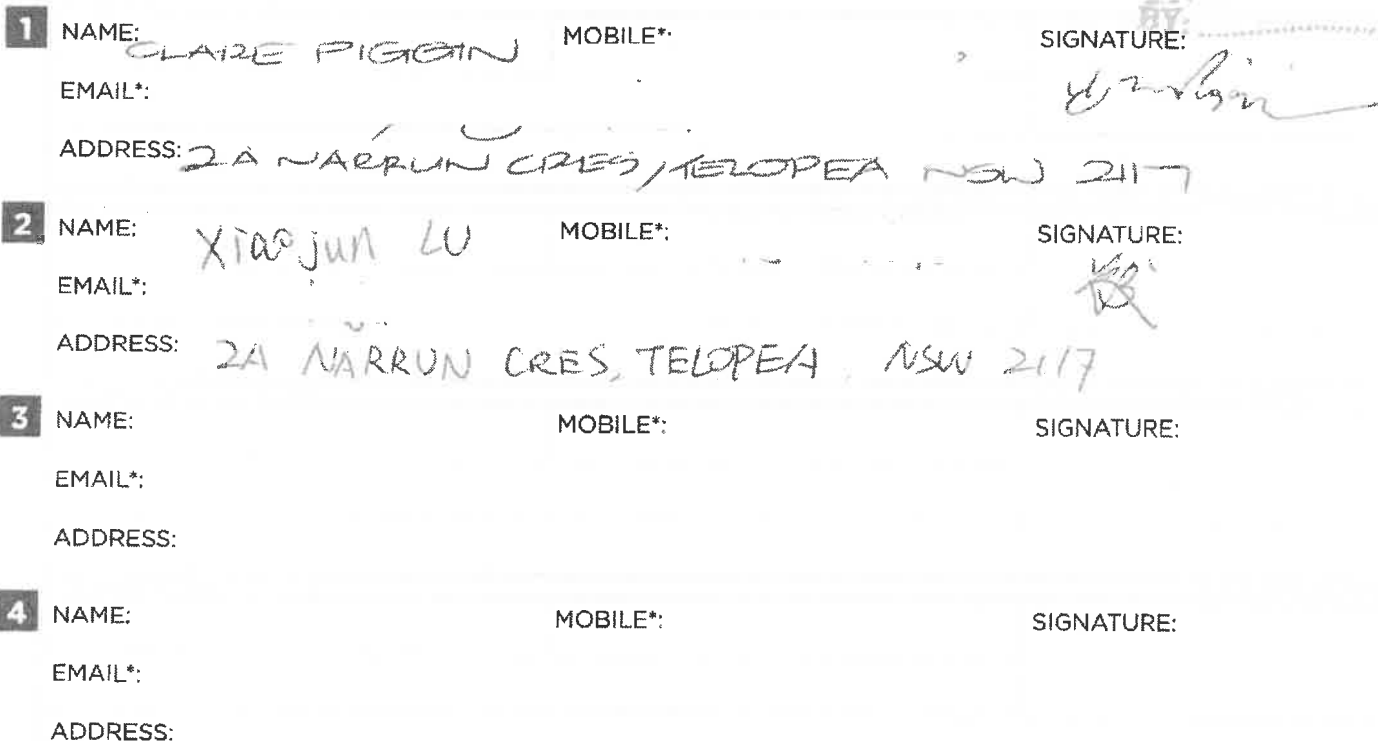 BY:
1 NAME: CLAIRE PIGGIN MOBILE*: SIGNATURE:
EMAIL*:
ADDRESS: 2A NARRUN CRES, TELOPEA NSW 2117
2 NAME: Xiaojun LU MOBILE*: SIGNATURE:
EMAIL*:
ADDRESS: 2A NARRUN CRES, TELOPEA NSW 2117
3 NAME: MOBILE*: SIGNATURE:
EMAIL*:
ADDRESS:
4 NAME: MOBILE*: SIGNATURE:
EMAIL*:
ADDRESS: